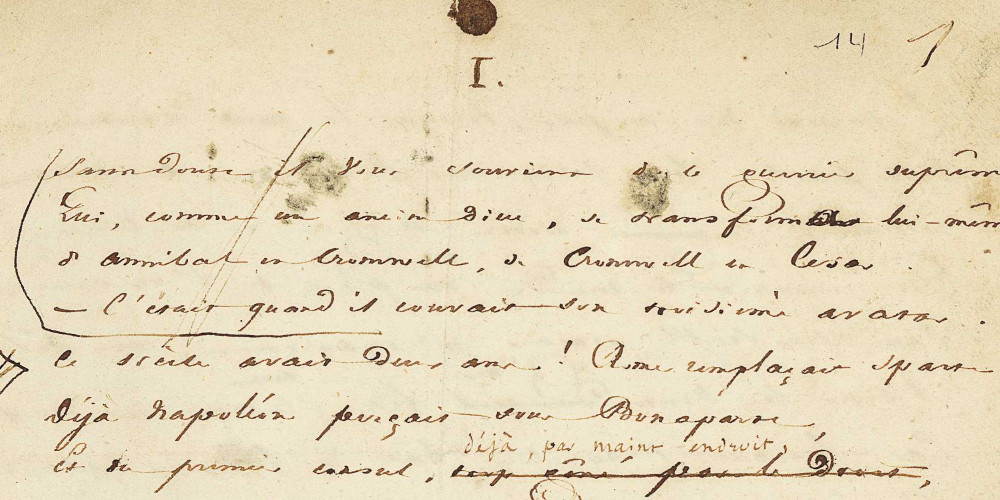 14 1
I.
Sans doute il vous souvient de ce guerrier suprêm
Qui, comme un ancien dieu, se transforma lui-mêm
D'annibal en Cromwell, de Cromwell en César.
— C'était quand il couvait son troisième avatar.
Ce siècle avait deux ans ! Rome remplaçait Sparte
Déjà Napoléon perçait sous Bonaparte,
déjà, par maint endroit,
Et du premier consul, trop gêné par le droit,